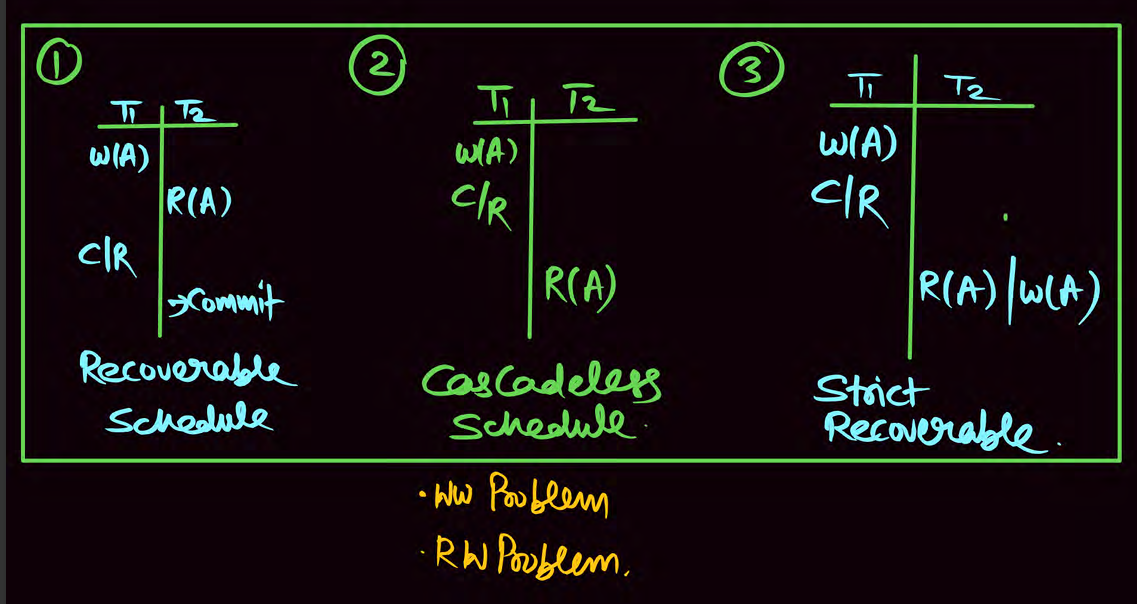 1
T1 T2
W(A)
R(A)
C/R
→Commit
Recoverable
Schedule
2
T1 T2
W(A)
C/R
R(A)
Cascadeless
Schedule.
3
T1 T2
W(A)
C/R
R(A) | W(A)
Strict
Recoverable.
· WW Problem
· RW Problem.